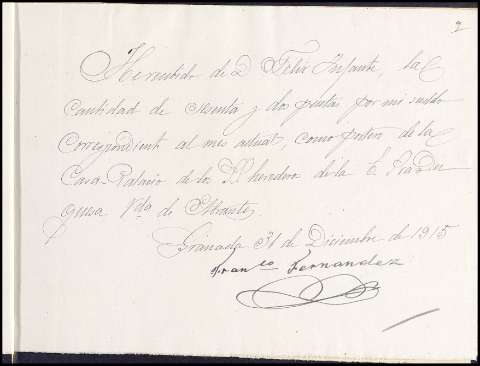 2
He recibido de D Felix Infante, la
cantidad de sesenta y dos pesetas por mi sueldo
correspondiente al mes actual, como portero de la
Casa-Palacio de los herederos de la E.
Vda de
Granada 31 de Diciembre de 1915
Franco Fernandez